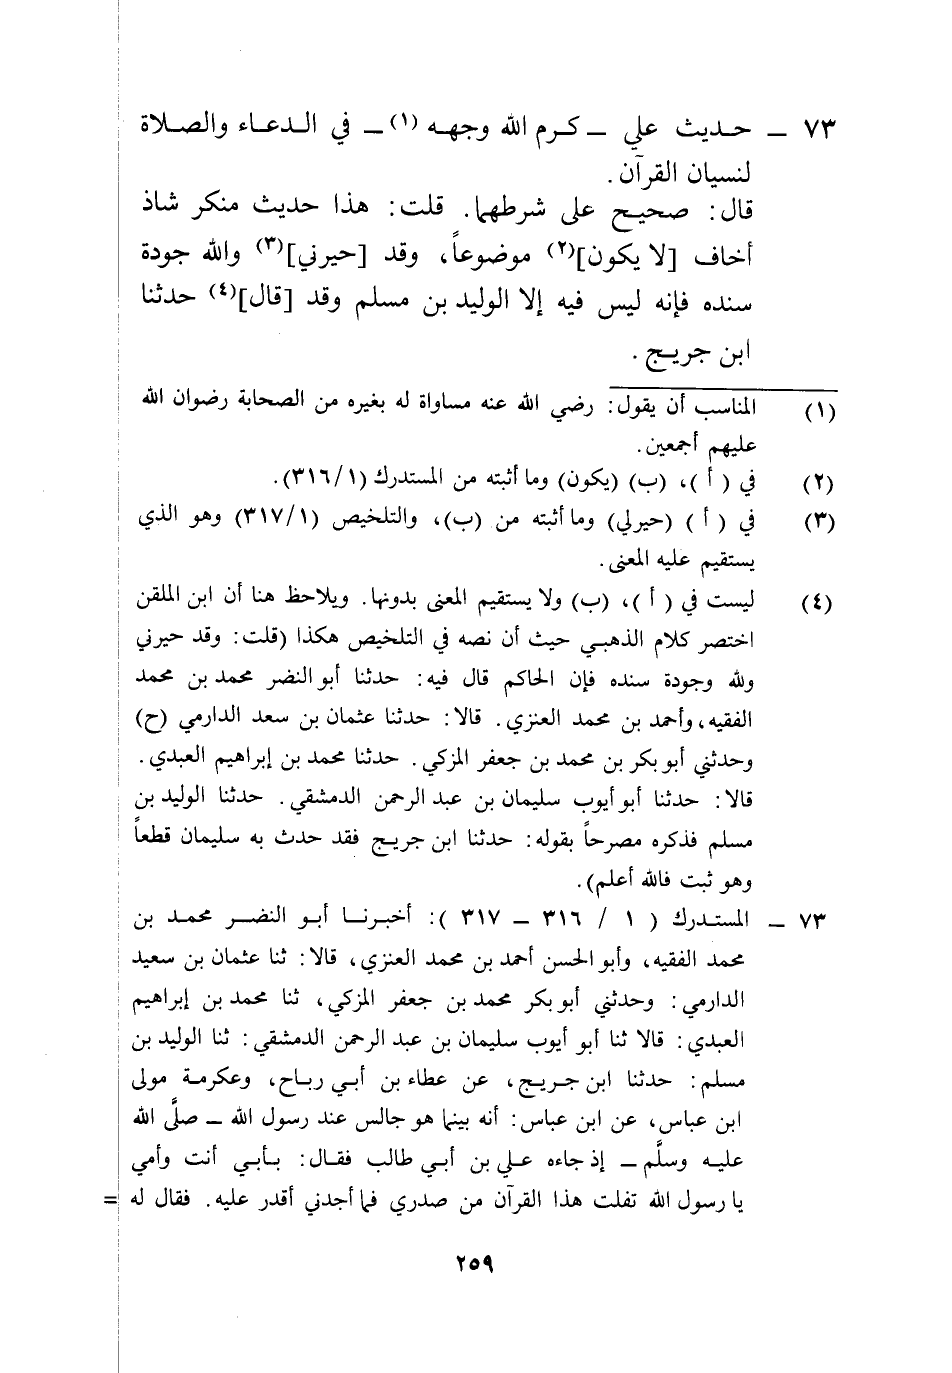 ٧٣ ـ حـديث علي ـ كـرم الله وجهـه (١) ـ في الـدعـاء والصـلاة
لنسيان القرآن .
قال : صحيح على شرطهما . قلت : هذا حديث منكر شاذ
أخاف [لا يكون](٢) موضوعاً، وقد [حيرني](٣) والله جودة
سنده فإنه ليس فيه إلا الوليد بن مسلم وقد [قال](٤) حدثنا
ابن جريج .
(١) المناسب أن يقول : رضي الله عنه مساواة له بغيره من الصحابة رضوان الله
عليهم أجمعين .
(٢) في ( أ )، (ب) (يكون) وما أثبته من المستدرك (٣١٦/١).
(٣) في ( أ ) (حيرلي) وما أثبته من (ب)، والتلخيص (٣١٧/١) وهو الذي
يستقيم عليه المعنى .
(٤) ليست في ( أ )، (ب) ولا يستقيم المعنى بدونها. ويلاحظ هنا أن ابن الملقن
اختصر كلام الذهبي حيث أن نصه في التلخيص هكذا (قلت : وقد حيرني
ولله وجودة سنده فإن الحاكم قال فيه : حدثنا أبو النضر محمد بن محمد
الفقيه، وأحمد بن محمد العنزي . قالا : حدثنا عثمان بن سعد الدارمي (ح)
وحدثني أبو بكر بن محمد بن جعفر المزكي . حدثنا محمد بن إبراهيم العبدي .
قالا : حدثنا أبو أيوب سليمان بن عبد الرحمن الدمشقي . حدثنا الوليد بن
مسلم فذكره مصرحاً بقوله : حدثنا ابن جريج فقد حدث به سليمان قطعاً
وهو ثبت فالله أعلم).
٧٣ ـ المستدرك ( ١ / ٣١٦ ـ ٣١٧ ) : أخبرنـا أبـو النضـر محمـد بن
محمد الفقيه، وأبو الحسن أحمد بن محمد العنزي، قالا : ثنا عثمان بن سعيد
الدارمي : وحدثني أبو بكر محمد بن جعفر المزكي، ثنا محمد بن إبراهيم
العبدي : قالا ثنا أبو أيوب سليمان بن عبد الرحمن الدمشقي : ثنا الوليد بن
مسلم : حدثنا ابن جـريـج، عن عطاء بن أبـي ربـاح، وعكرمـة مولى
ابن عباس، عن ابن عباس : أنه بينما هو جالس عند رسول الله ـ صلَّى الله
عليـه وسلَّم ـ إذ جاءه علي بن أبـي طالب فقـال : بـأبـي أنت وأمي
يا رسول الله تفلت هذا القرآن من صدري فما أجدني أقدر عليه . فقال له =
٢٥٩